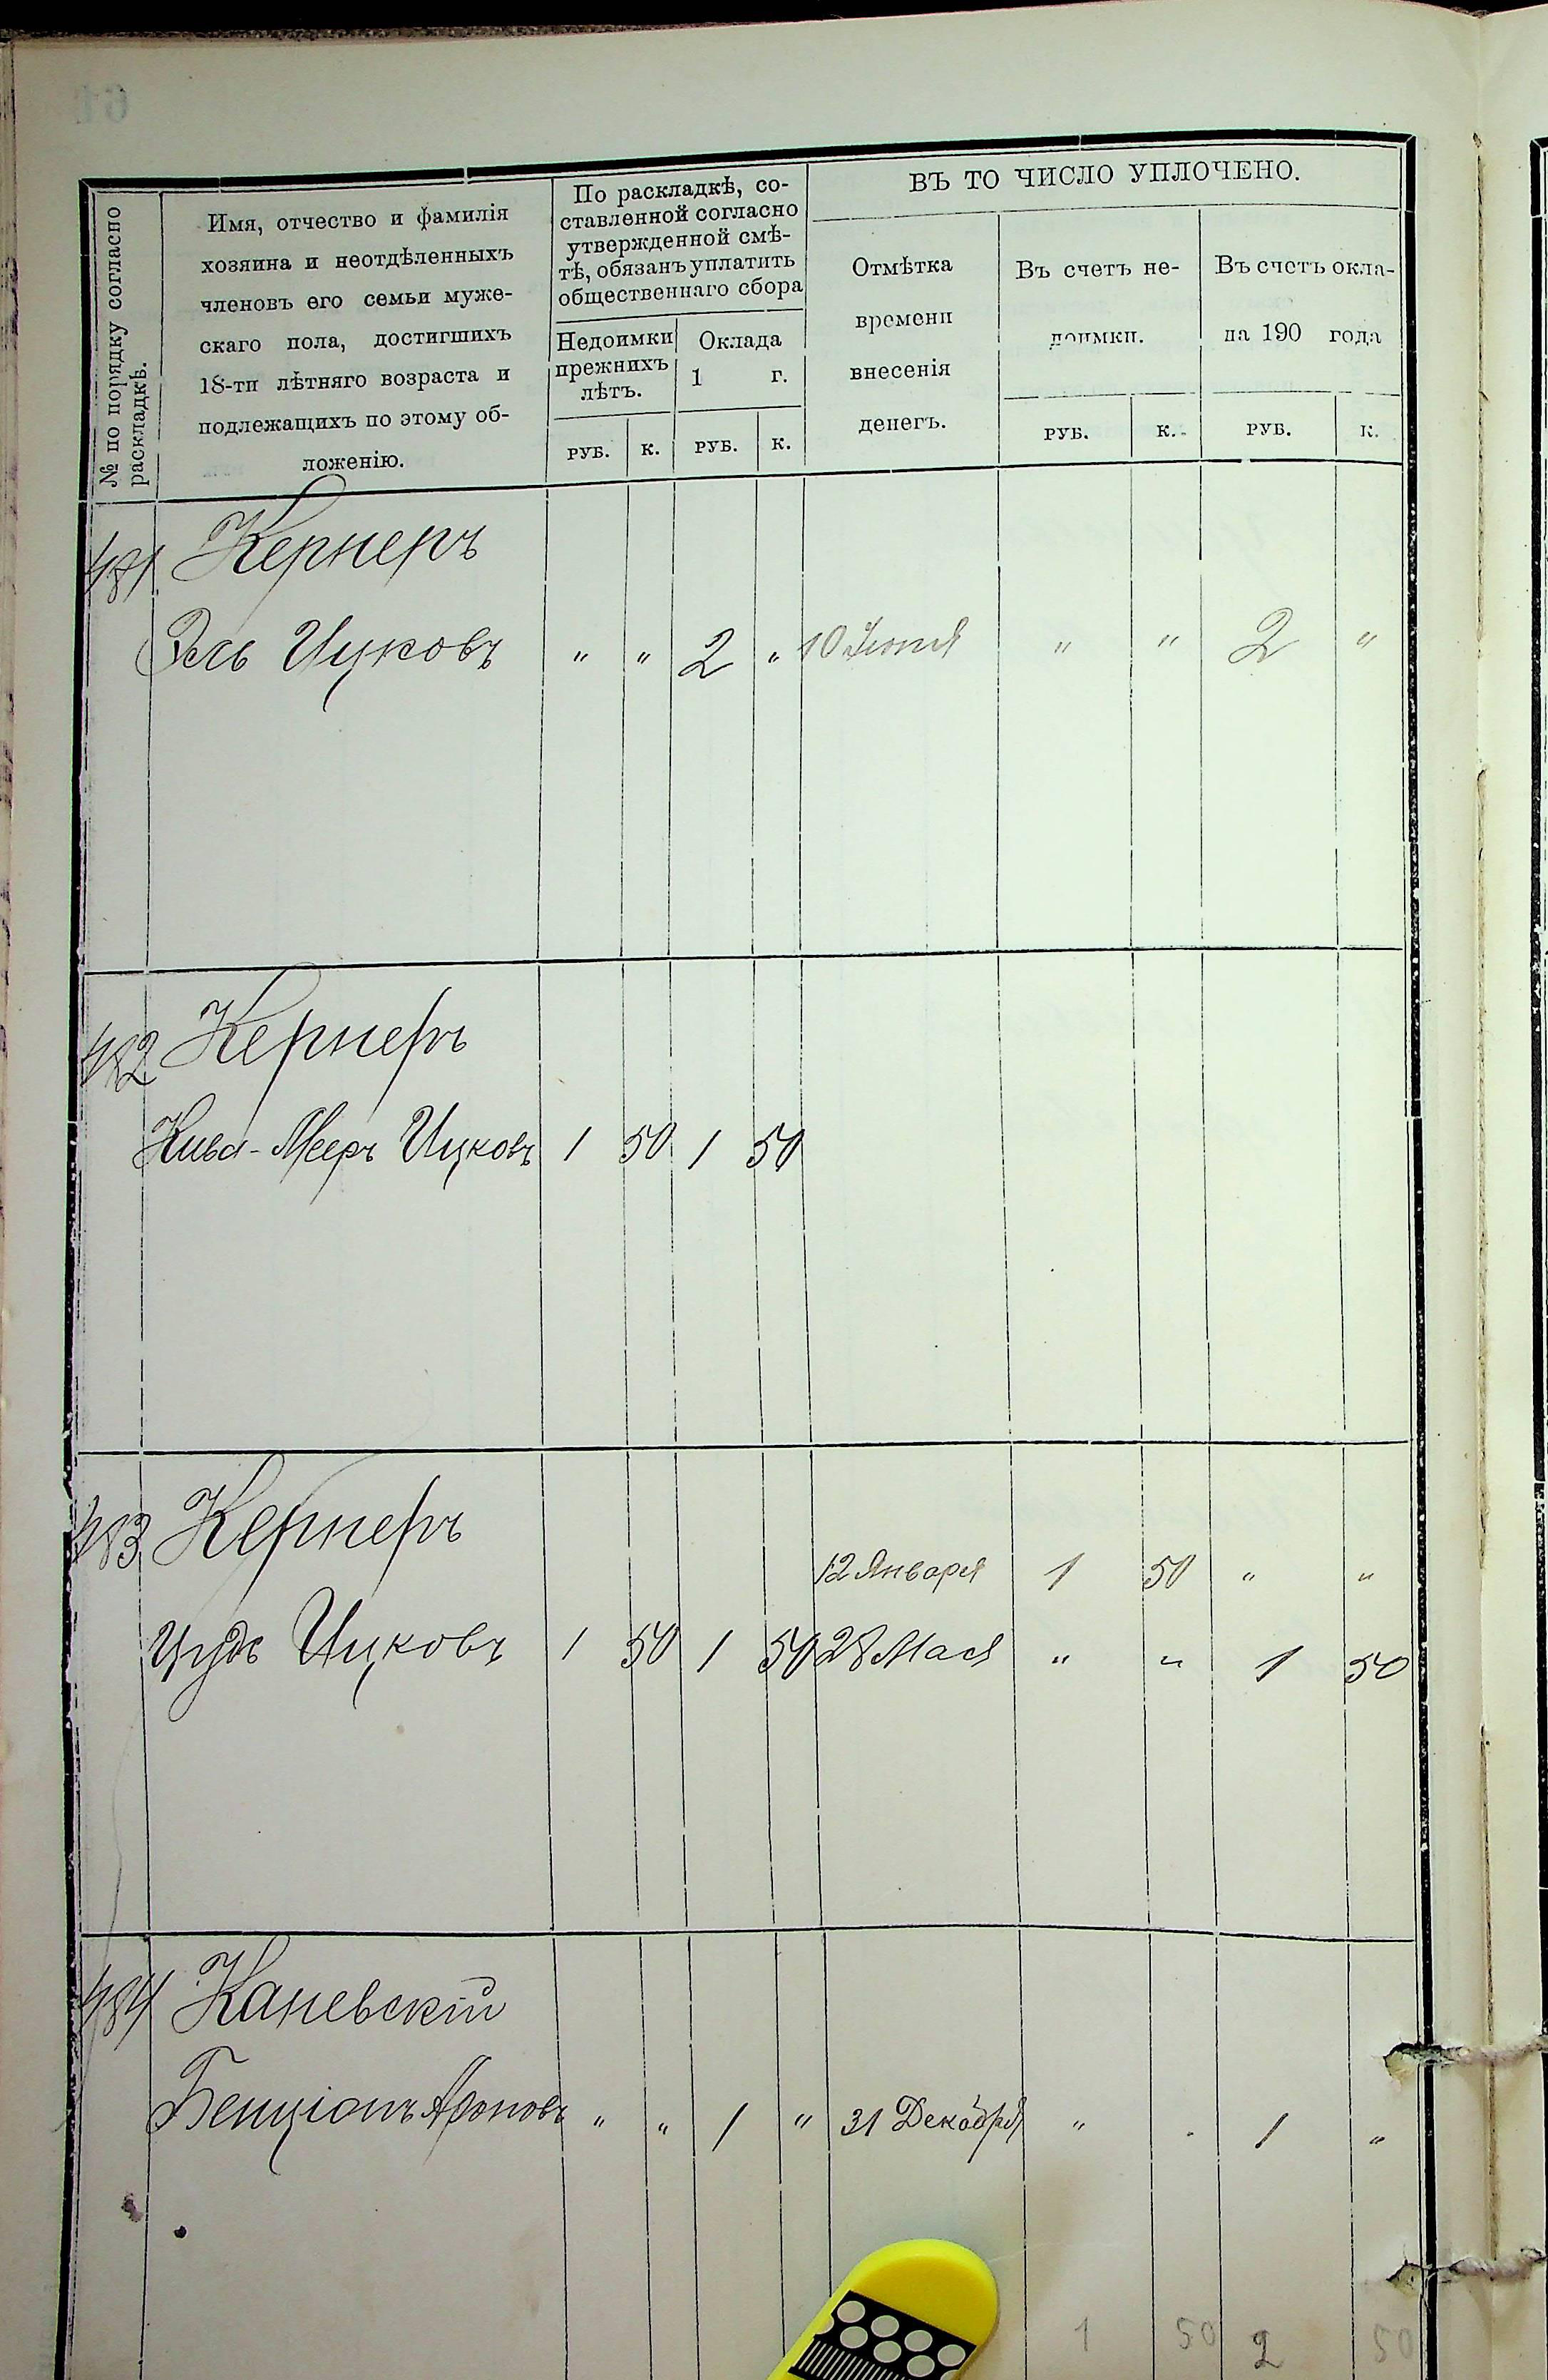 № по порядку согласно
раскладкѣ.
Имя, отчество и фамилія
хозяина и неотдѣленныхъ
членовъ его семьи муже-
скаго пола, достигшихъ
18-ти лѣтняго возраста и
подлежащихъ по этому об-
ложенію.
По раскладкѣ, со-
ставленной согласно
утвержденной смѣ-
тѣ, обязанъ уплатить
общественнаго сбора
Недоимки
прежнихъ
лѣтъ.
Оклада
1 г.
РУБ. К. РУБ. К.
ВЪ ТО ЧИСЛО УПЛОЧЕНО.
Отмѣтка
времени
внесенія
денегъ.
Въ счетъ не-
доимки.
РУБ. К.
Въ счетъ окла-
да 190 года
РУБ. К.
481. Кернеръ
Эль Ицковъ " " 2 " 10 Іюня " " 2 "
482 Кернеръ
Кива-Мееръ Ицковъ 1 50 1 50
483 Кернеръ
12 Января 1 50 " "
Ицковъ 1 50 1 50 28 Мая " " 1 50
484 Каневскій
Бенціонъ Ароновъ " " 1 " 31 Декабря " " 1 "
1 50 2 50